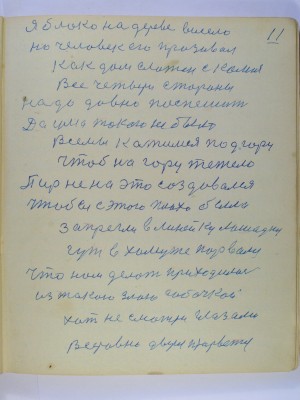 11
Яблоко на дереве висело
но человек его празивал
как дом сложон с камня
Все четыри стораны
надо довно поспешит
Да ума токого не было
Все мы катимся под гору
Чтоб на гору тежело
Пир не на это создовался
Чтобы с этого плохо было
запрегли в линейку лошадку
чут в хамуте порвали
Что нам делат приходилос
из такого злого собочкой
хот не смотри глазами
Всё довно двери